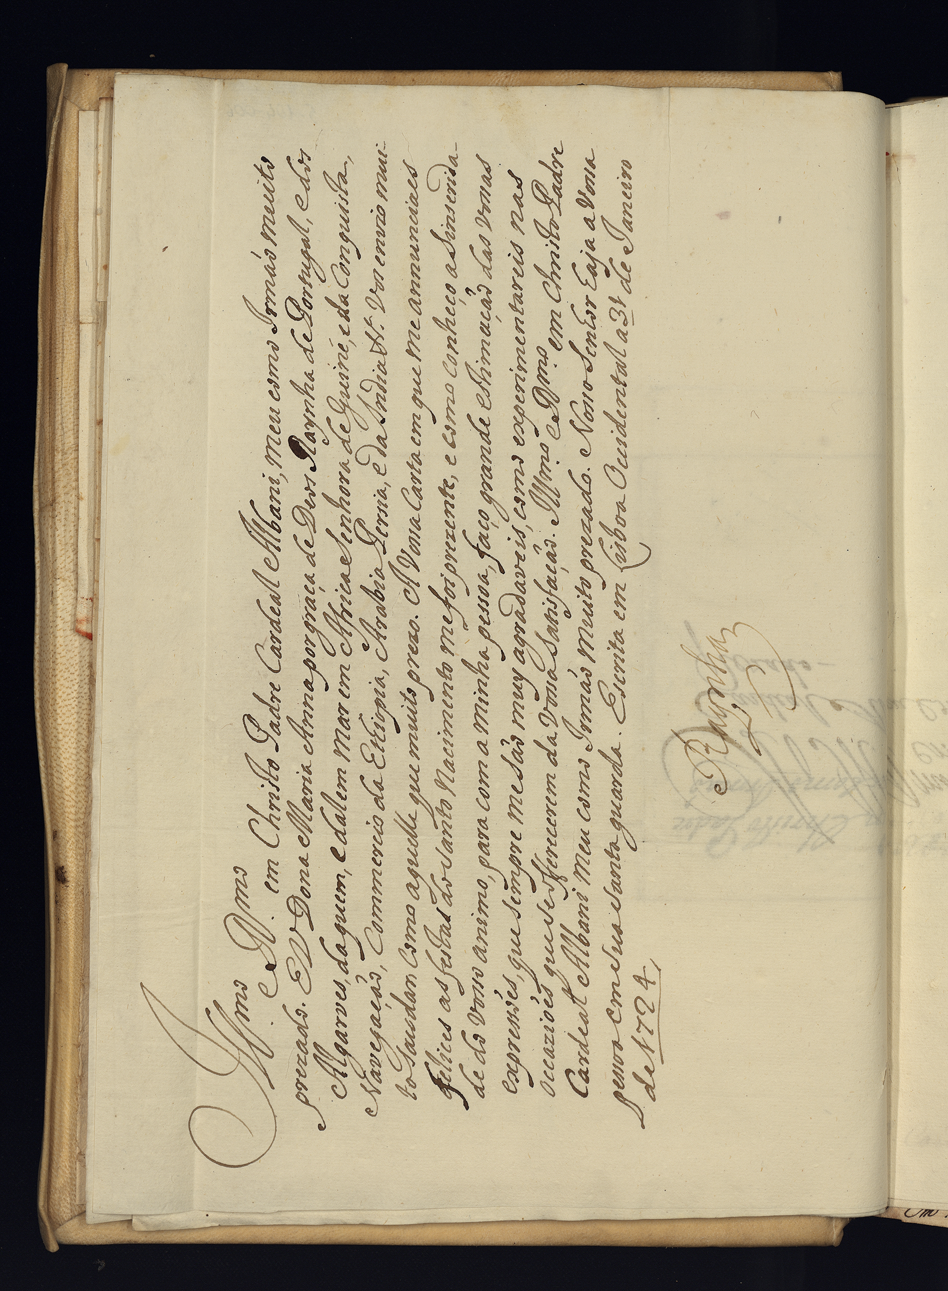 Illmo e Rmo. em Christo Padre Cardeal Albani, meu como Irmaõ muito
prezado. Eu Dona Maria Anna por graça de Deos Raynha de Portugal, e dos
Algarves, daquem, e dalem mar em Africa Senhora de Guine, e da Conquista,
Navegaçaõ, Commercio da Ethiopia, Arabia Persia, e da India &c. Vos envio mui-
to saudar como aquelle que muito prezo. A Vossa Carta em que me annunciaes
felices as festas do Santo Nacimento me foi prezente, e como conheço a sinserida-
de do vosso animo, para com a minha pessoa, faço grande estimaçaõ das vossas
expressões, que sempre me saõ muy agradaveis, como experimentareis nas
occaziões que se offerecerem da vossa satisfaçaõ. Illmo. e Rmo. em Christo Padre
Cardeal Albani meu como Irmaõ muito prezado. Nosso Senhor haja a Vossa
Pessoa em sua santa guarda. Escrita em Lisboa Occidental a 31 de Janeiro
de 1724,
Raynha